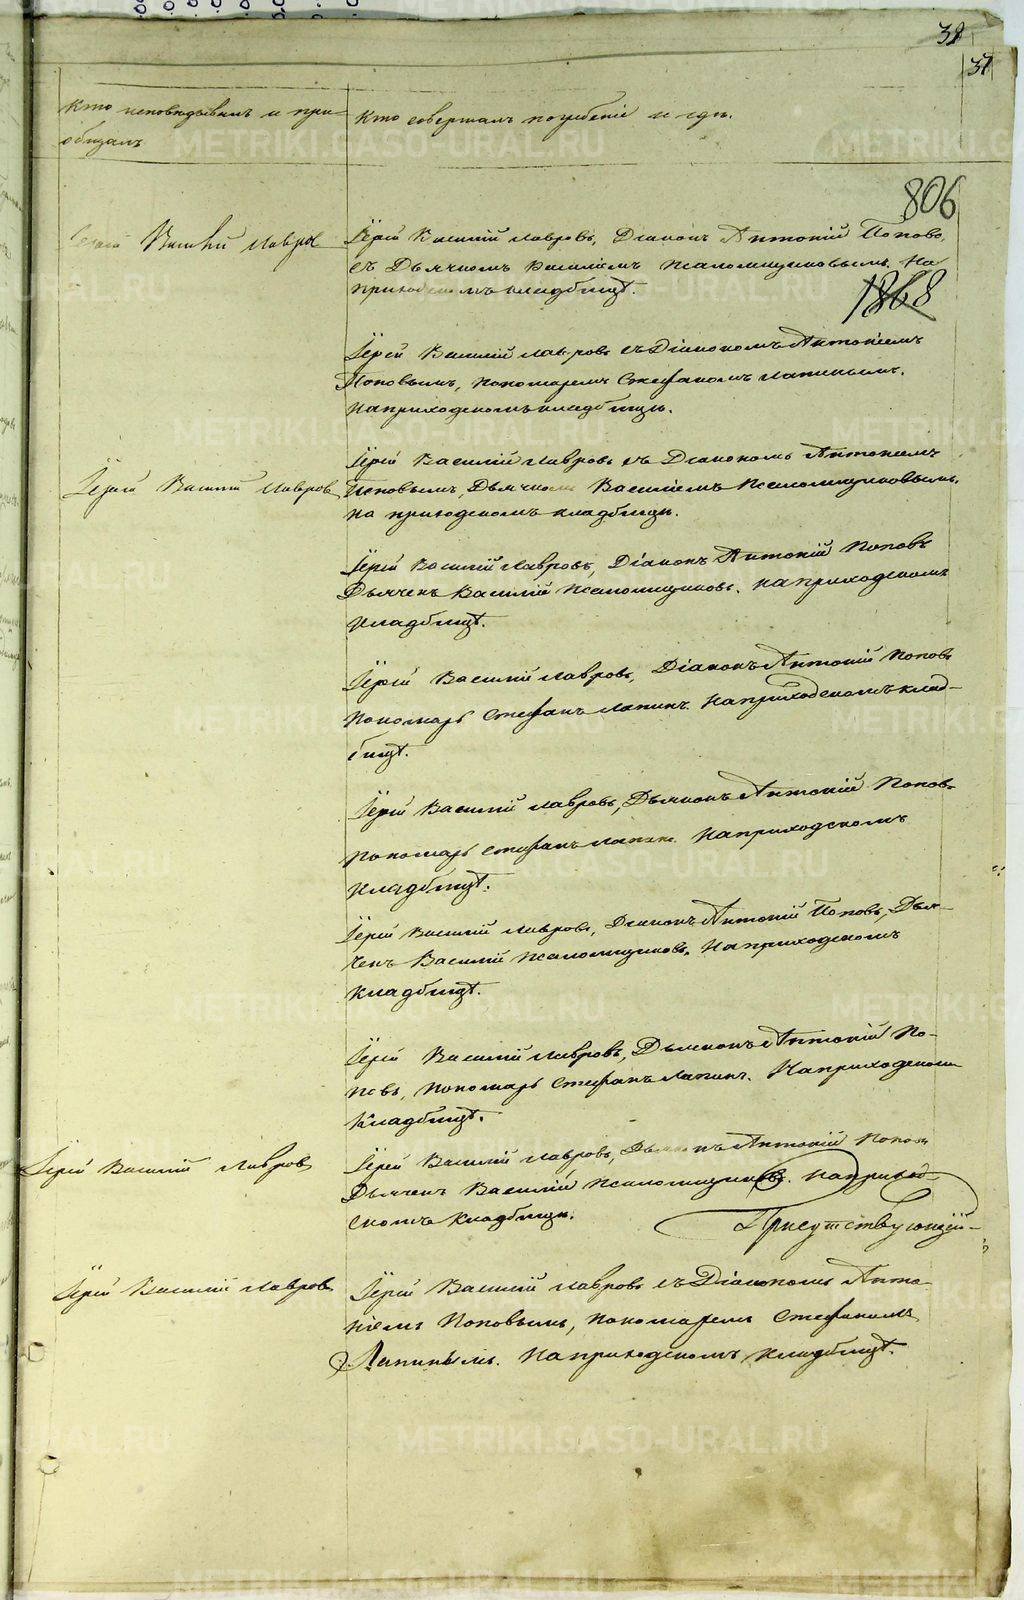 38
37
Кто исповѣдывалъ и прі-
общалъ
Кто совершалъ погребеніе и гдѣ.
806
Іерей Василій Лавровъ
Іерей Василій Лавровъ, Діаконъ Антоній Поповъ,
съ Дьячкомъ Василіемъ Псаломщиковымъ. На
приходскомъ кладбищѣ.
1868
Іерей Василій Лавровъ съ Діакономъ Антоніемъ
Поповымъ, пономаремъ Стефаномъ Лапинымъ.
На приходскомъ кладбищѣ.
Іерей Василій Лавровъ
Іерей Василій Лавровъ съ Діакономъ Антоніемъ
Поповымъ, Дьячкомъ Василіемъ Псаломщиковымъ.
на приходскомъ кладбищѣ.
Іерей Василій Лавровъ, Діаконъ Антоній Поповъ
Дьячекъ Василій Псаломщиковъ. на приходскомъ
кладбищѣ.
Іерей Василій Лавровъ, Діаконъ Антоній Поповъ
Пономарь Стефанъ Лапинъ. На приходскомъ клад-
бищѣ.
Іерей Василій Лавровъ, Дьяконъ Антоній Поповъ
пономарь Стефанъ Лапинъ. На приходскомъ
кладбищѣ.
Іерей Василій Лавровъ, Діаконъ Антоній Поповъ, Дья-
чекъ Василій Псаломщиковъ. На приходскомъ
кладбищѣ.
Іерей Василій Лавровъ, Дьяконъ Антоній По-
повъ, Пономарь Стефанъ Лапинъ. На приходскомъ
Кладбищѣ.
Іерей Василій Лавровъ
Іерей Василій Лавровъ, Дьяконъ Антоній Поповъ
Дьячекъ Василій Псаломщиковъ. На приход-
скомъ кладбищѣ.
Присутствующій
Іерей Василій Лавровъ
Іерей Василій Лавровъ съ Діакономъ Анто-
ніемъ Поповымъ, пономаремъ Стефаномъ
Лапинымъ. На приходскомъ кладбищѣ.
METRIKI.GASO-URAL.RU